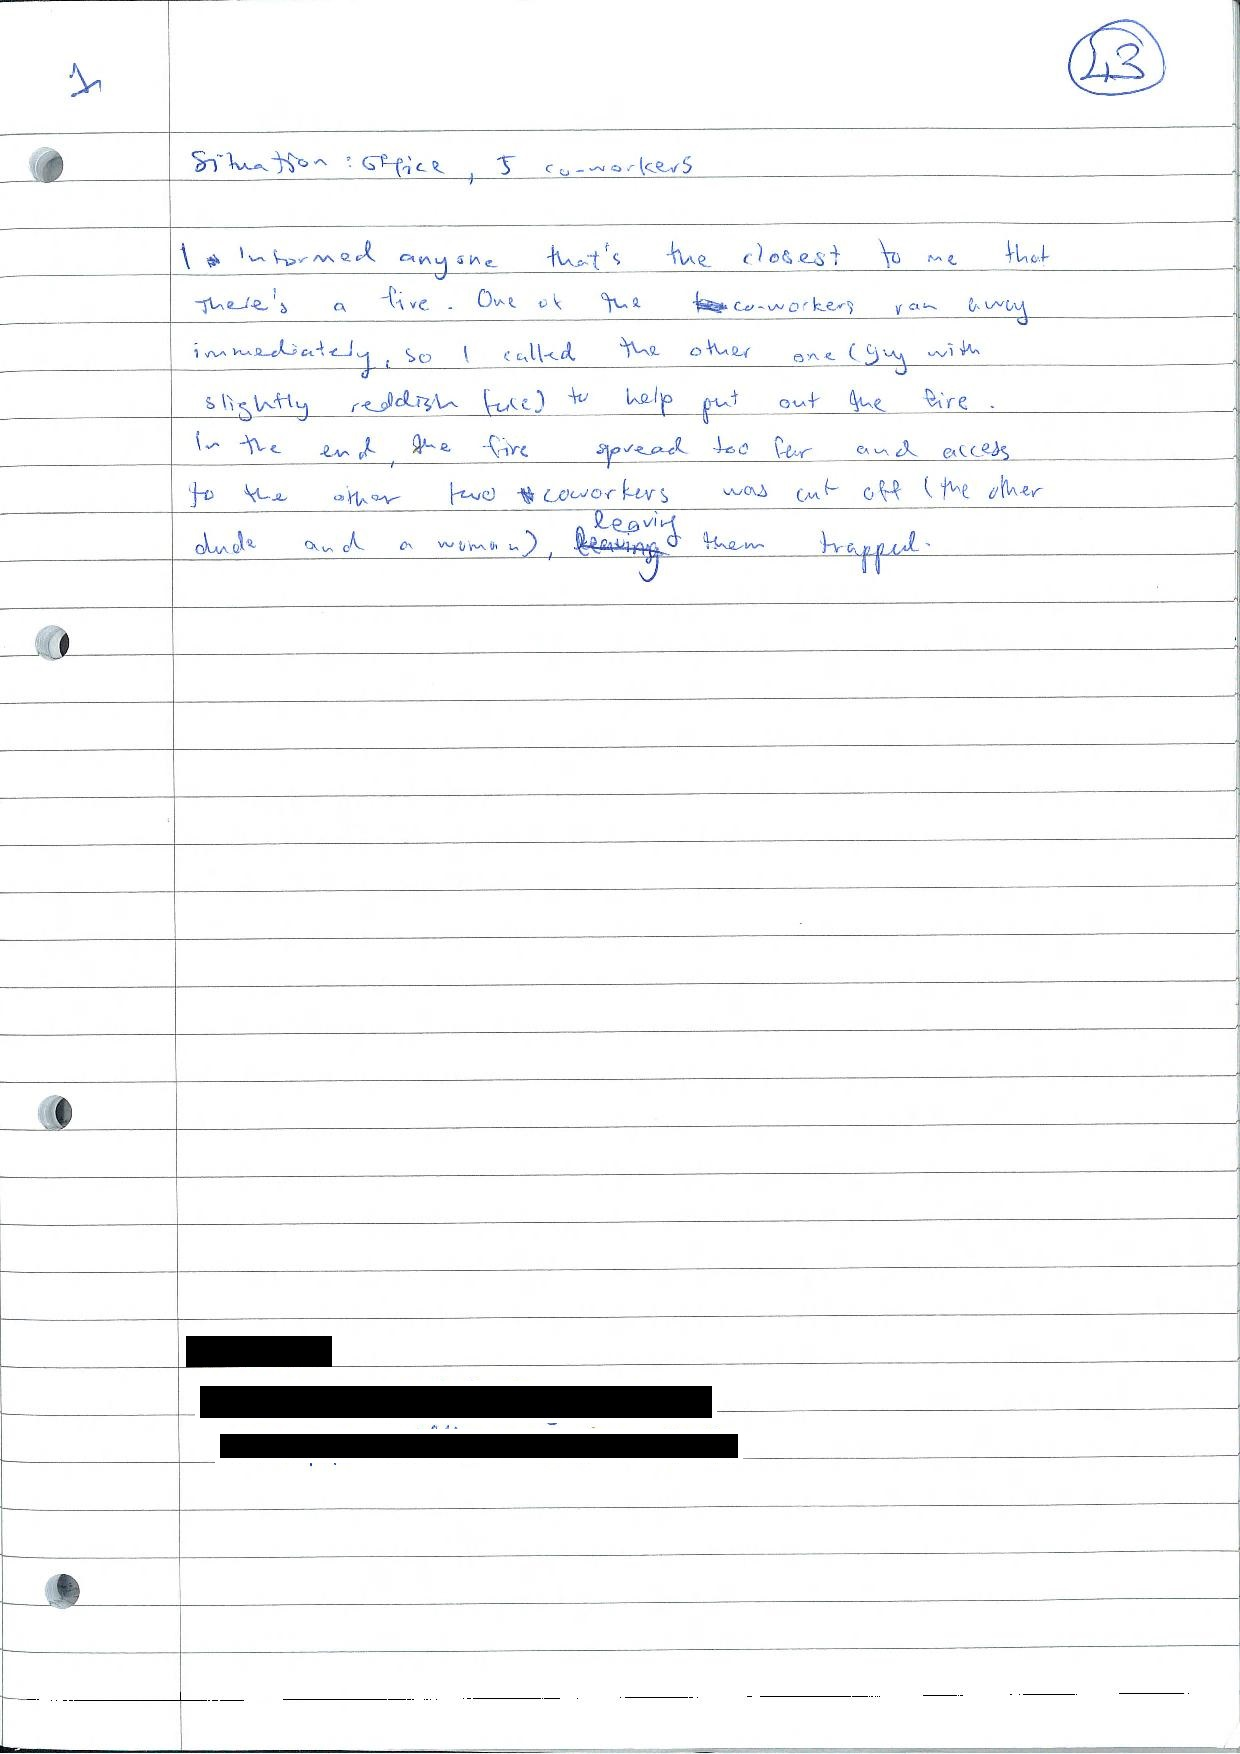 1
43
Situation: Office, 5 co-workers
I informed anyone that's the closest to me that
there's a fire. One of the co-workers ran away
immediately, so I called the other one (guy with
slightly reddish face) to help put out the fire.
In the end, the fire spread too far and access
to the other two coworkers was cut off (the other
dude and a woman), leaving them trapped.